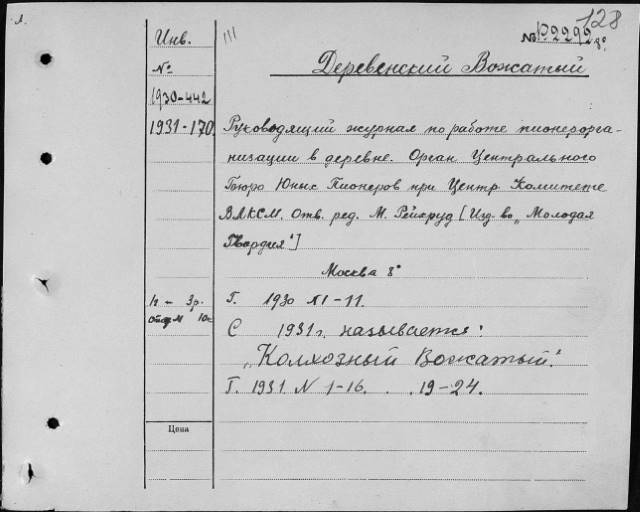 128
№ P2292 8°
III
Инв.
№
1930-442
1931-170
Деревенский Вожатый
Руководящий журнал по работе пионерорга-
низации в деревне. Орган Центрального
Бюро Юных Пионеров при Центр. Комитете
ВЛКСМ. Отв. ред. М. Рейхруд [Изд-во „Молодая
Гвардия"]
Москва 8°
Г. 1930 №1-11.
С 1931 г. называется:
„Колхозный Вожатый."
Г. 1931. N 1-16. . 19-24.
ц - 3р.
отд. № 10к
Цена